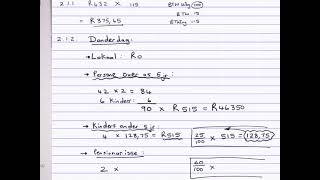 2.1.1 R432 x 115
BTW 115
= R375,65
2.1.2. Donderdag:
→ Lokaal: R0
→ Persone over as 5 jr:
42 x 2 = 84
6 Kinders: 6
90 x R515 = R46350
→ Kinders onder 5 jr
4 x 128,75 = R515
25/100 x 515 = 128,75
→ Pensionarisse:
2 x
60/100 x